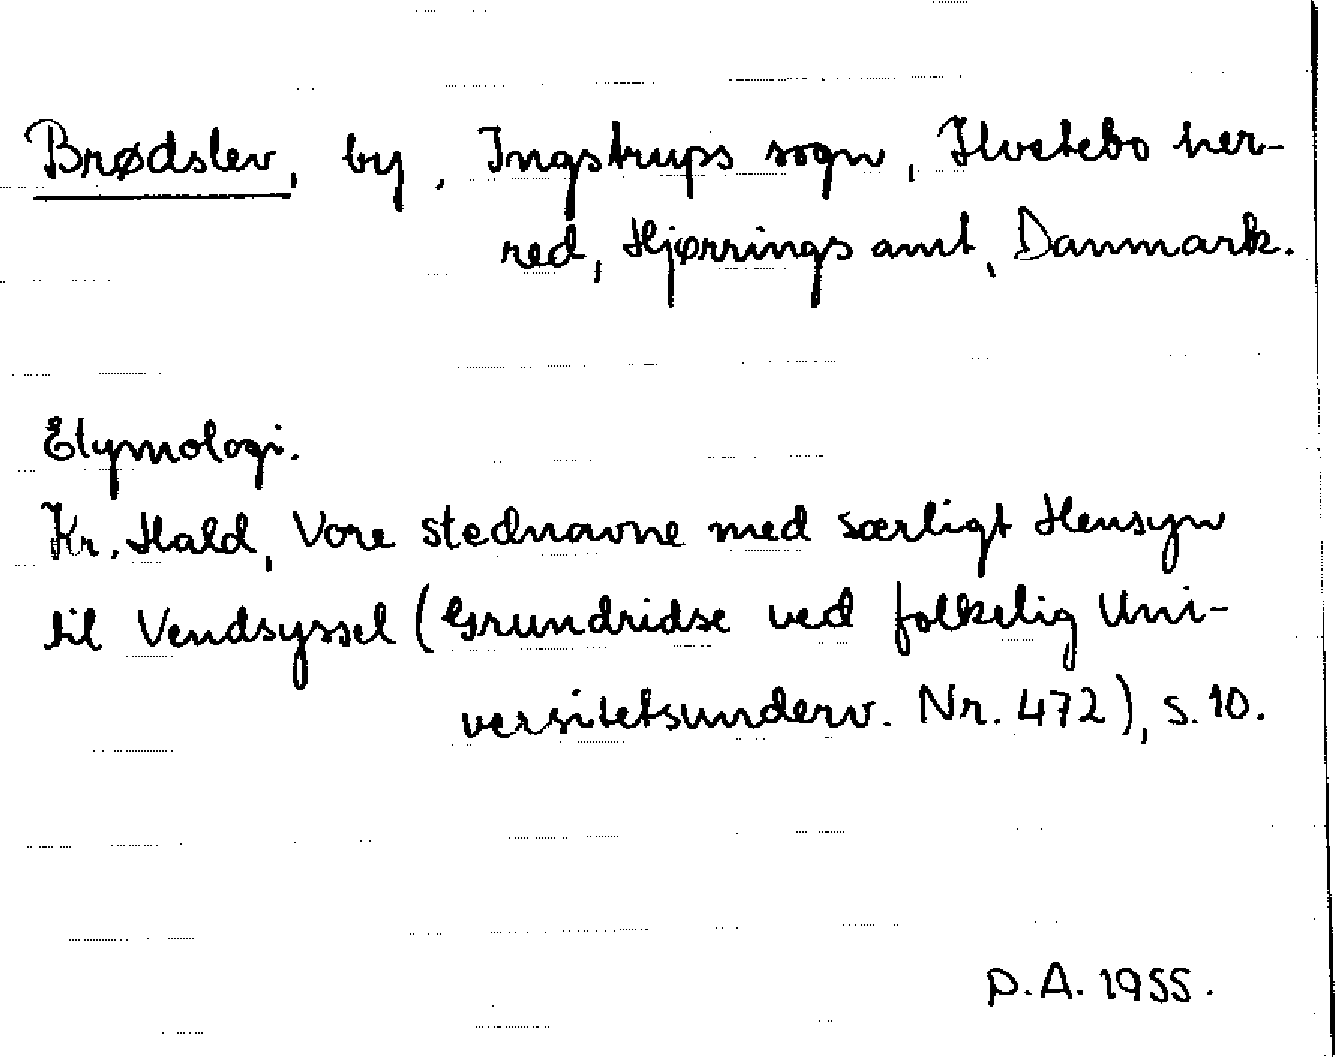 Brødslev, by, Ingstrups sogn, Hvetebo her-
red, Hjørrings amt, Danmark.
Etymologi.
Kr. Hald, Vore stednavne med særligt Hensyn
til Vendsyssel (Grundridse ved folkelig Uni-
versitetsunderv. Nr. 472), s. 10.
P.A. 1955.